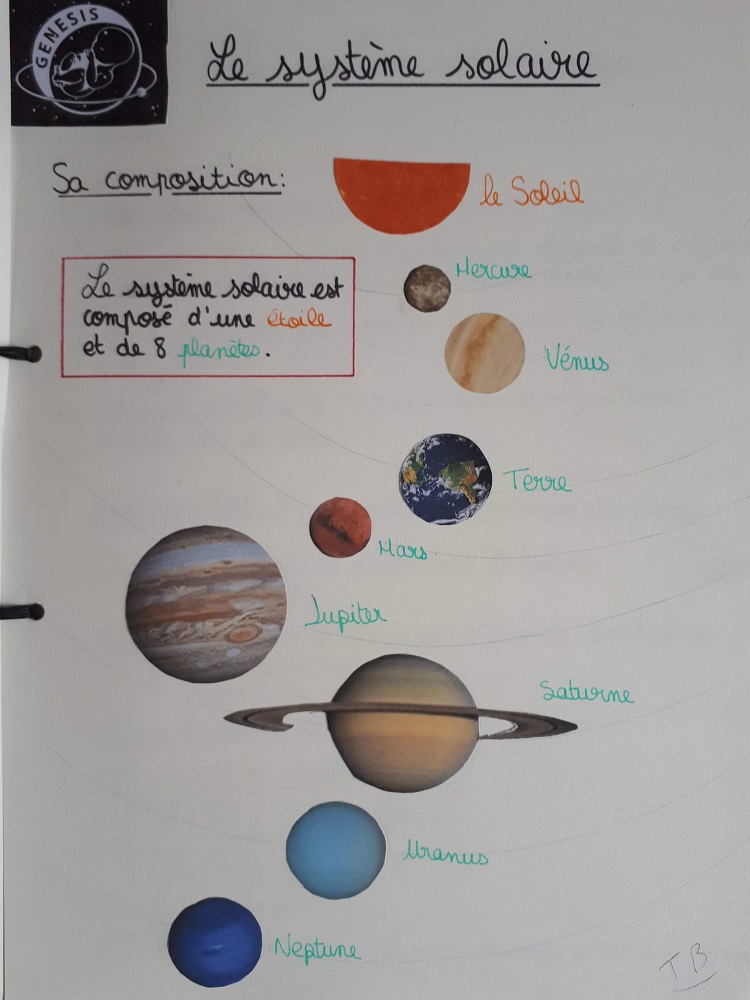 GENESIS
Le système solaire
Sa composition:
le Soleil
Mercure
Le système solaire est
composé d'une étoile
et de 8 planètes.
Vénus
Terre
Mars
Jupiter
Saturne
Uranus
Neptune
TB